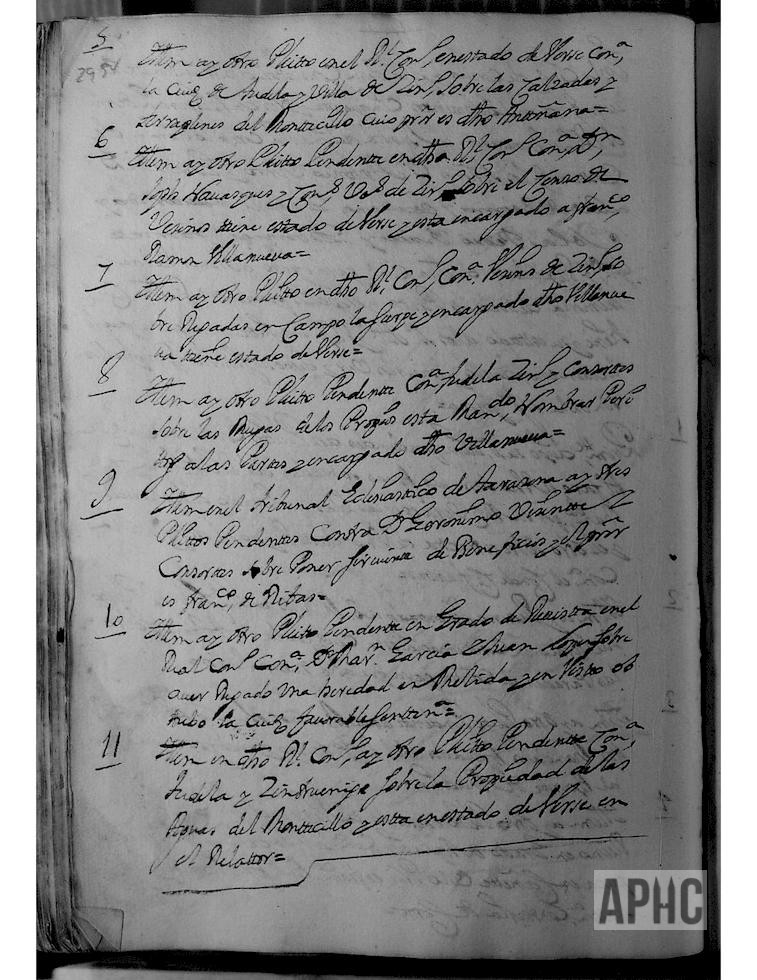 5 Ittem ay otro Pleitto en el Rl. Cons. en estado de Verse Conª.
295v
la Ciud. de Tudela y Villa de Zinf. Sobre las Calzadas y
terraplenes del Montticillo Cuio prõr es dho
6 Ittem ay otro Pleitto Pendentte en dho Rl. Cons. Conª. Dn.
Joph Navasques y Cons. Vs. de Zinf. Sobre el Censo de
Vecinos tiene estado de Verse y esta encargado a franco.
Ramon Villanueva=
7 Ittem ay otro Pleitto en dho Rl. Cons. Conª. Vecinos de Zinf. So
bre Regadas en Campo la Serpe y encargado dho Villanue
va tiene estado de Verse=
8 Ittem ay otro Pleitto Pendentte Conª. tudela Zinf. y Consorttes
Sobre las Mugas de los Propios esta Mando. Nombrar Peri
tos a las Parttes y encargado dho Villanueva=
9 Ittem en el tribunal Eclesiasttico de tarazona ay tres
Pleittos Pendenttes Contra Dn. Geronimo Vizentte y
Consorttes Sobre Poner Sirvientte de Beneficios y el prõr
es franco. de Ribas=
10 Ittem ay otro Pleitto Pendentte en Grado de Revistta en el
Real Cons. Conª. Dn. Marn. Garcia y Juan Lopez Sobre
aver Regado Una heredad en Melida y en Vistto ob
tubo la Ciud. favorable Senttenª.=
11 Ittem en dho Rl. Cons. ay otro Pleitto Pendentte Conª.
tudela y Zintruenigo Sobre la Propiedad de las
Aguas del Montticillo y esta en estado de Verse en
el Relattor=
APHC